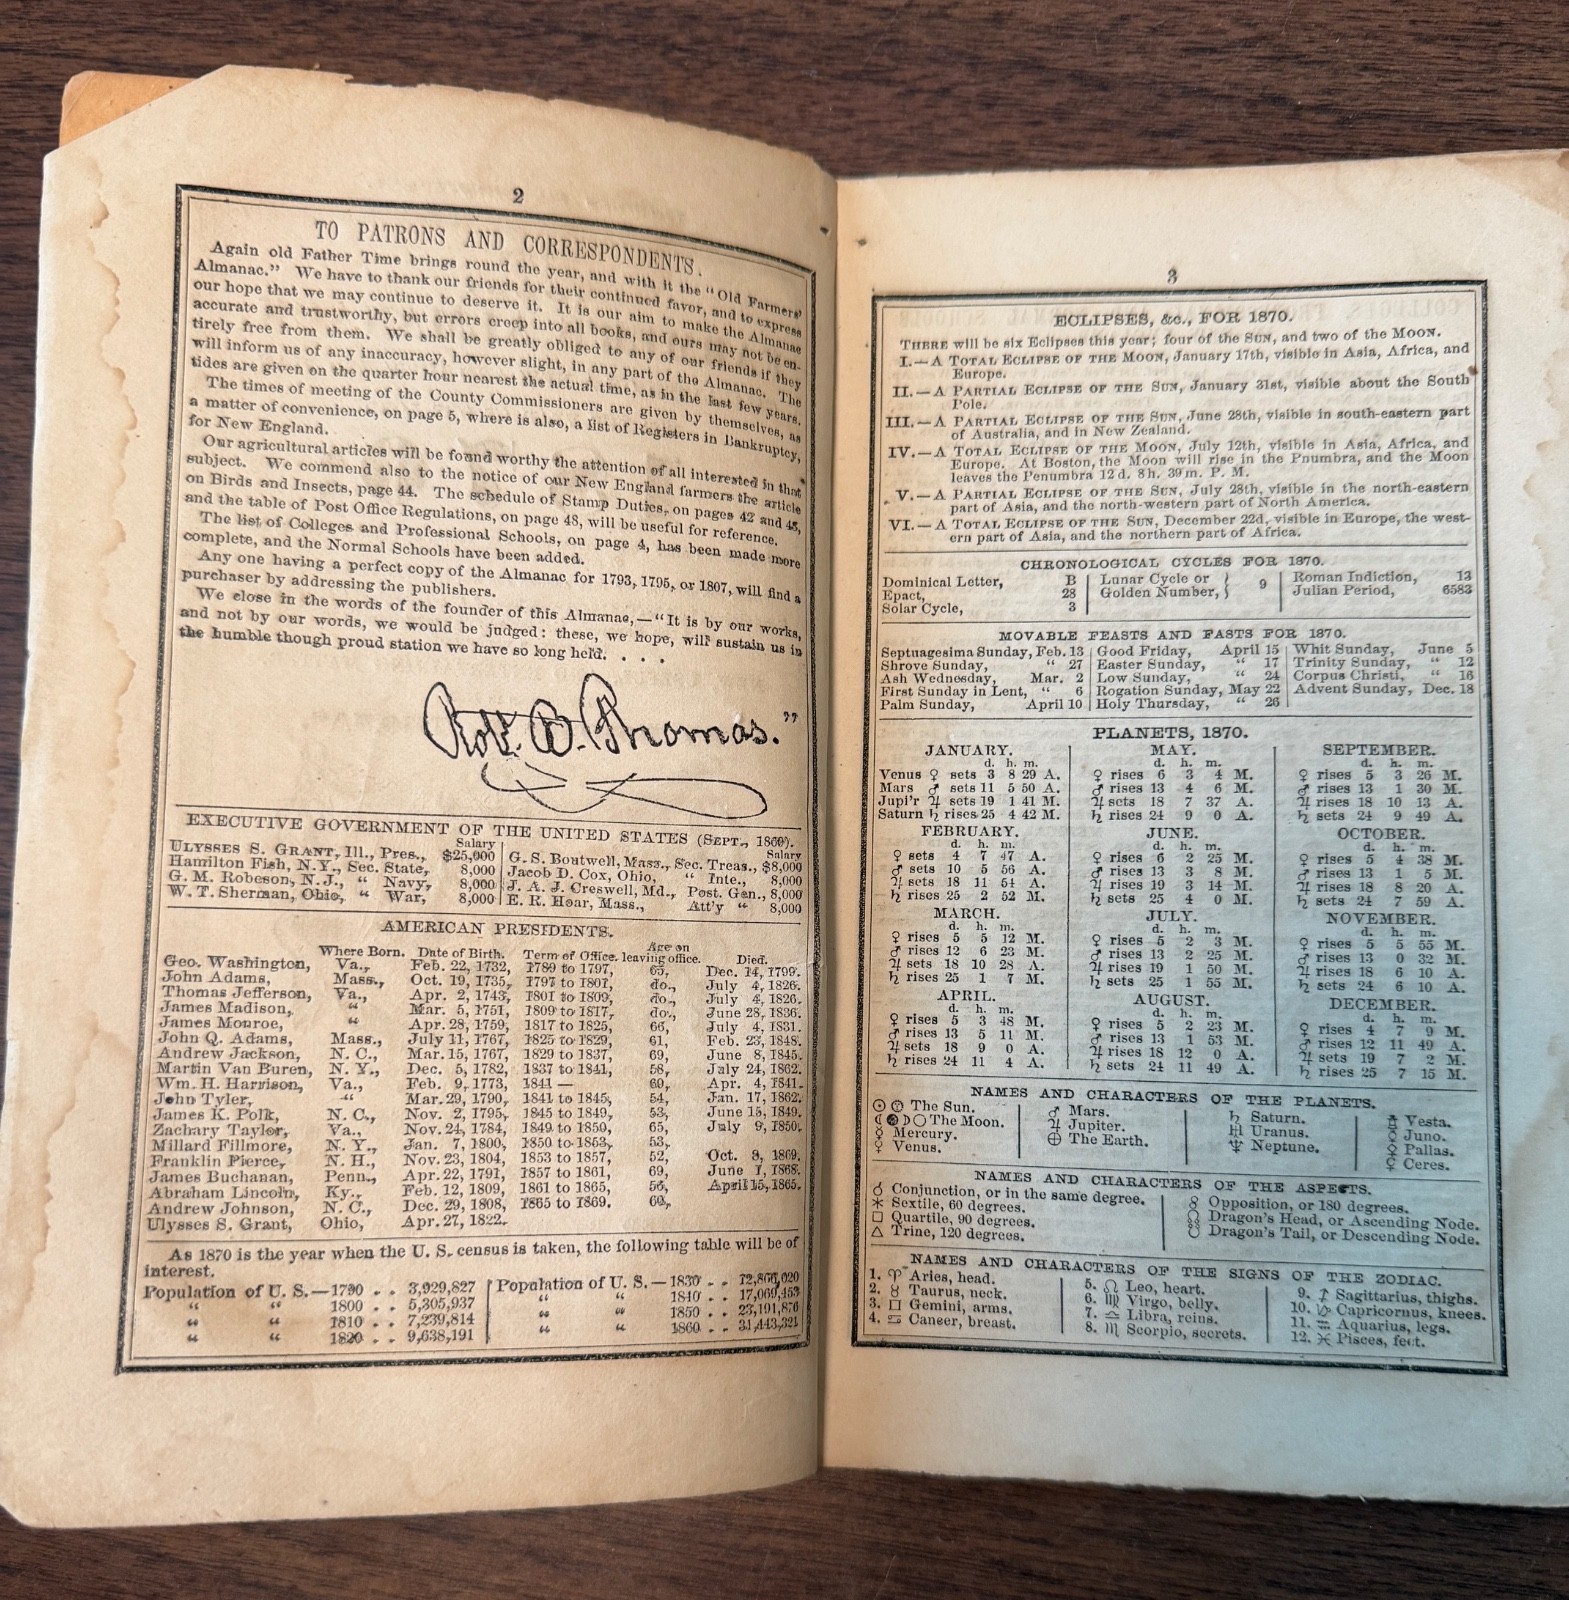 2
TO PATRONS AND CORRESPONDENTS.
Again old Father Time brings round the year, and with it the "Old Farmers'
Almanac." We have to thank our friends for their continued favor, and to express
our hope that we may continue to deserve it. It is our aim to make the Almanac
accurate and trustworthy, but errors creep into all books, and ours may not be en-
tirely free from them. We shall be greatly obliged to any of our friends if they
will inform us of any inaccuracy, however slight, in any part of the Almanac. The
tides are given on the quarter hour nearest the actual time, as in the last few years.
The times of meeting of the County Commissioners are given by themselves, as
a matter of convenience, on page 5, where is also, a list of Registers in Bankruptcy,
for New England.
Our agricultural articles will be found worthy the attention of all interested in that
subject. We commend also to the notice of our New England farmers the article
on Birds and Insects, page 44. The schedule of Stamp Duties, on pages 42 and 43,
and the table of Post Office Regulations, on page 48, will be useful for reference.
The list of Colleges and Professional Schools, on page 4, has been made more
complete, and the Normal Schools have been added.
Any one having a perfect copy of the Almanac for 1793, 1795, or 1807, will find a
purchaser by addressing the publishers.
We close in the words of the founder of this Almanac,—"It is by our works,
and not by our words, we would be judged: these, we hope, will sustain us in
the humble though proud station we have so long held. . . .
Robt. B. Thomas."
EXECUTIVE GOVERNMENT OF THE UNITED STATES (SEPT., 1869).
Salary Salary
ULYSSES S. GRANT, Ill., Pres., $25,000 G. S. Boutwell, Mass., Sec. Treas., $8,000
Hamilton Fish, N.Y., Sec. State, 8,000 Jacob D. Cox, Ohio, " Inte., 8,000
G. M. Robeson, N.J., " Navy, 8,000 J. A. J. Creswell, Md., Post. Gen., 8,000
W. T. Sherman, Ohio, " War, 8,000 E. R. Hoar, Mass., Att'y " 8,000
AMERICAN PRESIDENTS.
Where Born. Date of Birth. Term of Office. Age on leaving office. Died.
Geo. Washington, Va., Feb. 22, 1732, 1789 to 1797, 65, Dec. 14, 1799.
John Adams, Mass., Oct. 19, 1735, 1797 to 1801, do., July 4, 1826.
Thomas Jefferson, Va., Apr. 2, 1743, 1801 to 1809, do., July 4, 1826.
James Madison, " Mar. 5, 1751, 1809 to 1817, do., June 28, 1836.
James Monroe, " Apr. 28, 1759, 1817 to 1825, 66, July 4, 1831.
John Q. Adams, Mass., July 11, 1767, 1825 to 1829, 61, Feb. 23, 1848.
Andrew Jackson, N. C., Mar. 15, 1767, 1829 to 1837, 69, June 8, 1845.
Martin Van Buren, N. Y., Dec. 5, 1782, 1837 to 1841, 58, July 24, 1862.
Wm. H. Harrison, Va., Feb. 9, 1773, 1841 — 69, Apr. 4, 1841.
John Tyler, " Mar. 29, 1790, 1841 to 1845, 54, Jan. 17, 1862.
James K. Polk, N. C., Nov. 2, 1795, 1845 to 1849, 53, June 15, 1849.
Zachary Taylor, Va., Nov. 24, 1784, 1849 to 1850, 65, July 9, 1850.
Millard Fillmore, N. Y., Jan. 7, 1800, 1850 to 1853, 53,
Franklin Pierce, N. H., Nov. 23, 1804, 1853 to 1857, 52, Oct. 8, 1869.
James Buchanan, Penn., Apr. 22, 1791, 1857 to 1861, 69, June 1, 1868.
Abraham Lincoln, Ky., Feb. 12, 1809, 1861 to 1865, 56, April 15, 1865.
Andrew Johnson, N. C., Dec. 29, 1808, 1865 to 1869. 60,
Ulysses S. Grant, Ohio, Apr. 27, 1822.
As 1870 is the year when the U. S. census is taken, the following table will be of
interest.
Population of U. S.—1790 . . 3,929,827 Population of U. S.—1830 . . 12,866,020
" " 1800 . . 5,305,937 " " 1840 . . 17,069,453
" " 1810 . . 7,239,814 " " 1850 . . 23,191,876
" " 1820 . . 9,638,191 " " 1860 . . 31,443,321
3
ECLIPSES, &c., FOR 1870.
THERE will be six Eclipses this year; four of the SUN, and two of the MOON.
I.—A TOTAL ECLIPSE OF THE MOON, January 17th, visible in Asia, Africa, and
Europe.
II.—A PARTIAL ECLIPSE OF THE SUN, January 31st, visible about the South
Pole.
III.—A PARTIAL ECLIPSE OF THE SUN, June 28th, visible in south-eastern part
of Australia, and in New Zealand.
IV.—A TOTAL ECLIPSE OF THE MOON, July 12th, visible in Asia, Africa, and
Europe. At Boston, the Moon will rise in the Pnumbra, and the Moon
leaves the Penumbra 12 d. 8h. 39 m. P. M.
V.—A PARTIAL ECLIPSE OF THE SUN, July 28th, visible in the north-eastern
part of Asia, and the north-western part of North America.
VI.—A TOTAL ECLIPSE OF THE SUN, December 22d, visible in Europe, the west-
ern part of Asia, and the northern part of Africa.
CHRONOLOGICAL CYCLES FOR 1870.
Dominical Letter, B Lunar Cycle or } 9 Roman Indiction, 13
Epact, 28 Golden Number, } Julian Period, 6583
Solar Cycle, 3
MOVABLE FEASTS AND FASTS FOR 1870.
Septuagesima Sunday, Feb. 13 Good Friday, April 15 Whit Sunday, June 5
Shrove Sunday, " 27 Easter Sunday, " 17 Trinity Sunday, " 12
Ash Wednesday, Mar. 2 Low Sunday, " 24 Corpus Christi, " 16
First Sunday in Lent, " 6 Rogation Sunday, May 22 Advent Sunday, Dec. 18
Palm Sunday, April 10 Holy Thursday, " 26
PLANETS, 1870.
JANUARY. MAY. SEPTEMBER.
d. h. m. d. h. m. d. h. m.
Venus ♀ sets 3 8 29 A. ♀ rises 6 3 4 M. ♀ rises 5 3 26 M.
Mars ♂ sets 11 5 50 A. ♂ rises 13 4 6 M. ♂ rises 13 1 30 M.
Jupi'r ♃ sets 19 1 41 M. ♃ sets 18 7 37 A. ♃ rises 18 10 13 A.
Saturn ♄ rises 25 4 42 M. ♄ rises 24 9 0 A. ♄ sets 24 9 49 A.
FEBRUARY. JUNE. OCTOBER.
d. h. m. d. h. m. d. h. m.
♀ sets 4 7 47 A. ♀ rises 6 2 25 M. ♀ rises 5 4 38 M.
♂ sets 10 5 56 A. ♂ rises 13 3 8 M. ♂ rises 13 1 5 M.
♃ sets 18 11 54 A. ♃ rises 19 3 14 M. ♃ rises 18 8 20 A.
♄ rises 25 2 52 M. ♄ sets 25 4 0 M. ♄ sets 24 7 59 A.
MARCH. JULY. NOVEMBER.
d. h. m. d. h. m. d. h. m.
♀ rises 5 5 12 M. ♀ rises 5 2 3 M. ♀ rises 5 5 55 M.
♂ rises 12 6 23 M. ♂ rises 13 2 25 M. ♂ rises 13 0 32 M.
♃ sets 18 10 28 A. ♃ rises 19 1 50 M. ♃ rises 18 6 10 A.
♄ rises 25 1 7 M. ♄ sets 25 1 55 M. ♄ sets 24 6 10 A.
APRIL. AUGUST. DECEMBER.
d. h. m. d. h. m. d. h. m.
♀ rises 5 3 48 M. ♀ rises 5 2 23 M. ♀ rises 4 7 9 M.
♂ rises 13 5 11 M. ♂ rises 13 1 53 M. ♂ rises 12 11 49 A.
♃ sets 18 9 0 A. ♃ rises 18 12 0 A. ♃ sets 19 7 2 M.
♄ rises 24 11 4 A. ♄ sets 24 11 49 A. ♄ rises 25 7 15 M.
NAMES AND CHARACTERS OF THE PLANETS.
☉ The Sun. ♂ Mars. ♄ Saturn. Vesta.
The Moon. ♃ Jupiter. ♅ Uranus. Juno.
☿ Mercury. ⊕ The Earth. ♆ Neptune. Pallas.
♀ Venus. Ceres.
NAMES AND CHARACTERS OF THE ASPECTS.
☌ Conjunction, or in the same degree. ☍ Opposition, or 180 degrees.
✶ Sextile, 60 degrees. ☊ Dragon's Head, or Ascending Node.
□ Quartile, 90 degrees. ☋ Dragon's Tail, or Descending Node.
△ Trine, 120 degrees.
NAMES AND CHARACTERS OF THE SIGNS OF THE ZODIAC.
1. ♈ Aries, head. 5. ♌ Leo, heart. 9. ♐ Sagittarius, thighs.
2. ♉ Taurus, neck. 6. ♍ Virgo, belly. 10. ♑ Capricornus, knees.
3. ♊ Gemini, arms. 7. ♎ Libra, reins. 11. ♒ Aquarius, legs.
4. ♋ Cancer, breast. 8. ♏ Scorpio, secrets. 12. ♓ Pisces, feet.